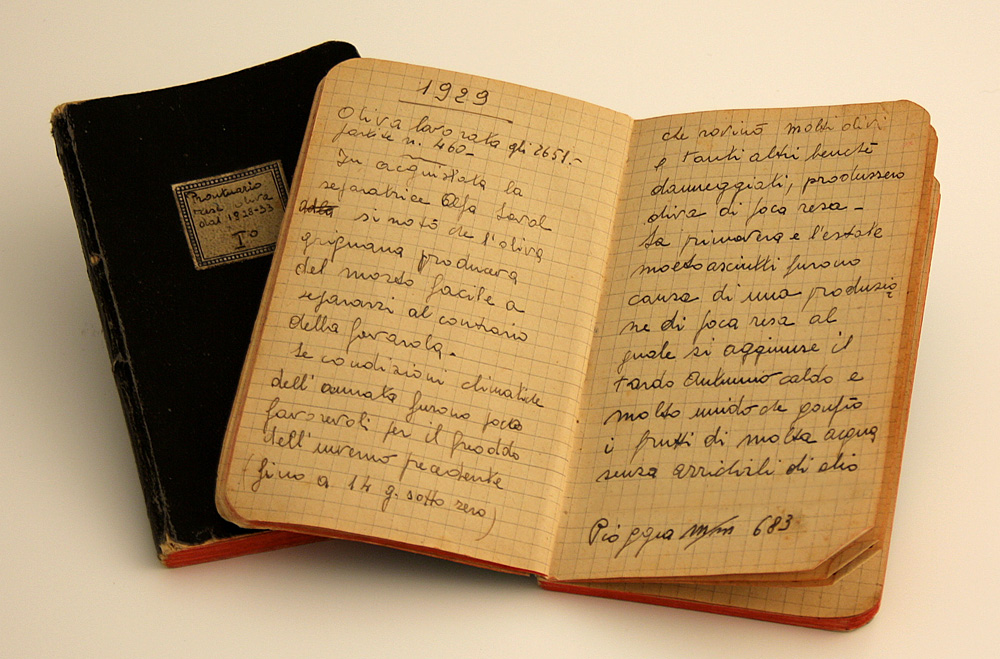 Prontuario
rese oliva
dal 1928-33
I°
1929
Oliva lavorata qli 2651.-
partite n. 460-
In acquistata la
separatrice Alfa Laval
si notò che l'oliva
grignana produceva
del mosto facile a
separarsi al contrario
della favarola.
Le condizioni climatiche
dell'annata furono poco
favorevoli per il freddo
dell'inverno precedente
(fino a 14 g. sotto zero)
che rovinò molti olivi
e tanti altri benchè
danneggiati, produssero
oliva di poca resa -
La primavera e l'estate
molto asciutti furono
causa di una produzio
ne di poca resa al
quale si aggiunse il
tardo Autunno caldo e
molto umido che gonfiò
i frutti di molta acqua
senza arrichirli di olio
Pioggia m/m 683